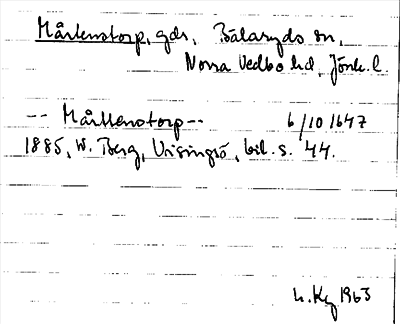 Mårtenstorp, gdr, Bälaryds sn,
Norra Vedbo hd, Jönk. l.
-- Mårttenstorp -- 6/10 1647
1885, W. Berg, Visingsö, bil. s. 44.
1963